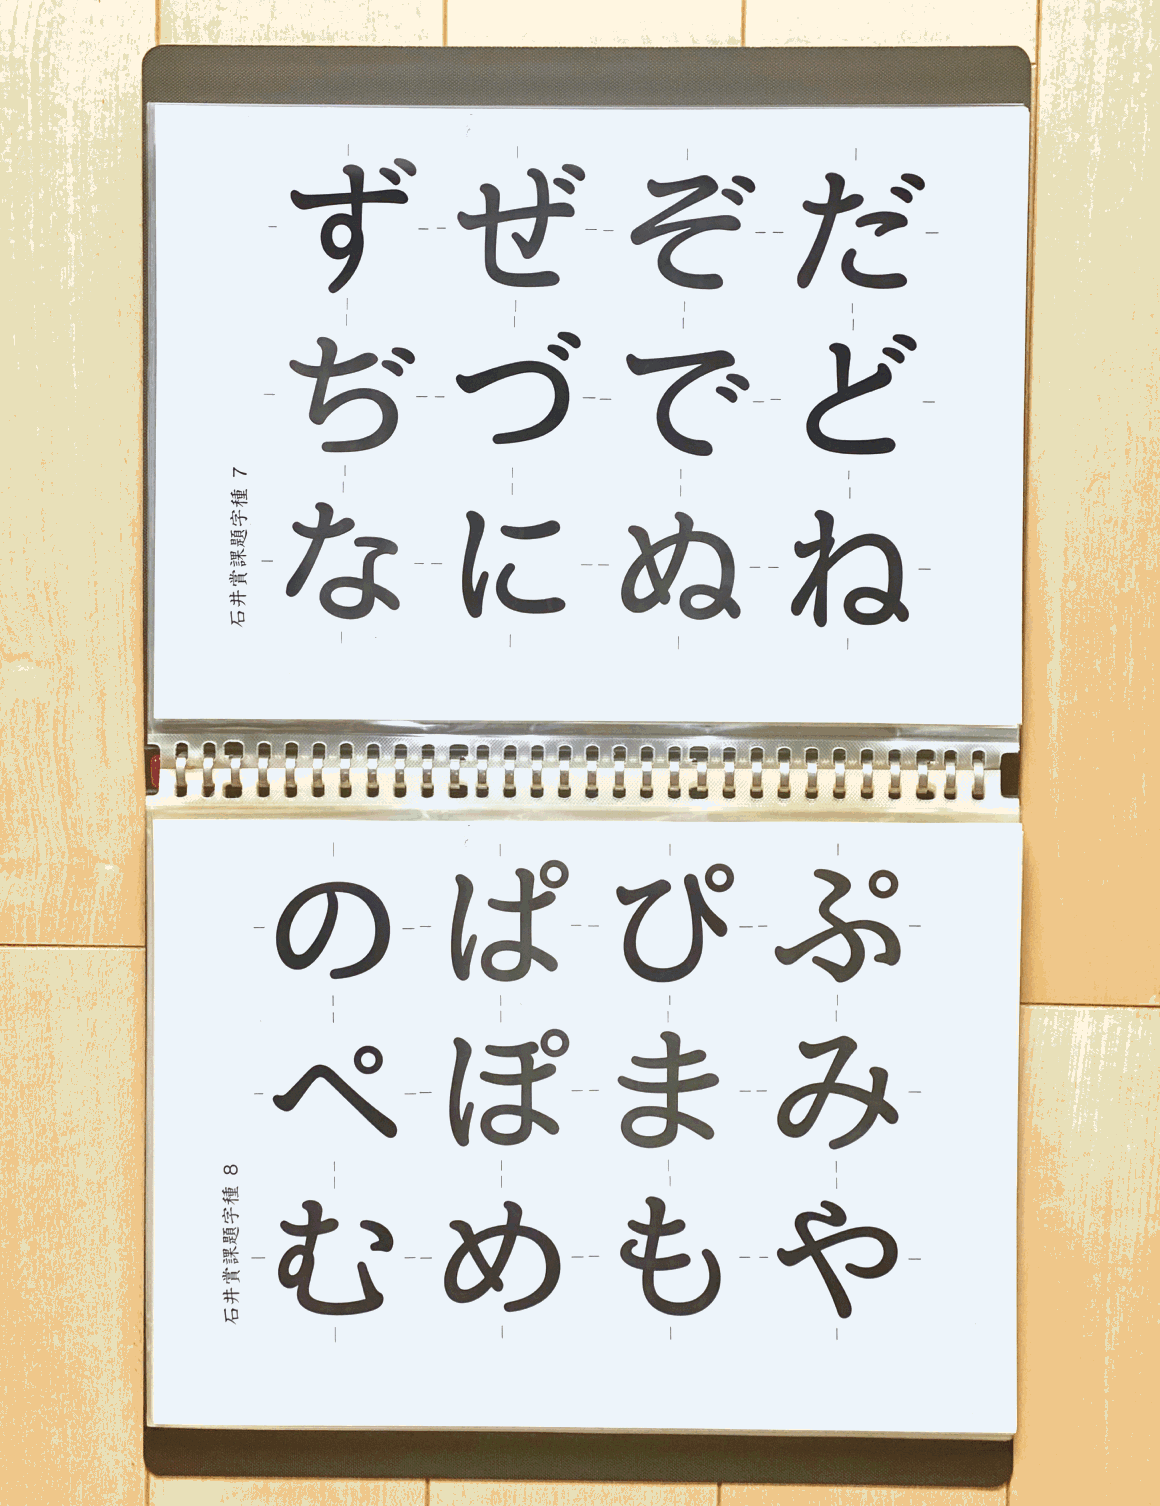 ず ぜ ぞ だ
ぢ づ で ど
な に ぬ ね
石井賞課題字種 7
の ぱ ぴ ぷ
ぺ ぽ ま み
む め も や
石井賞課題字種 8